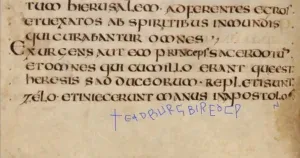 tum hierusalem adferentes egros
etuexatos ab spiritibus inmundis
qui curabantur omnes
Exurgens autem princeps sacerdotum
etomnes qui cumillo erant quaeest
heresis sadduceorum repletisunt
zelo etiniecerunt manus inapostolos
+EADBURG BIREð CǷ